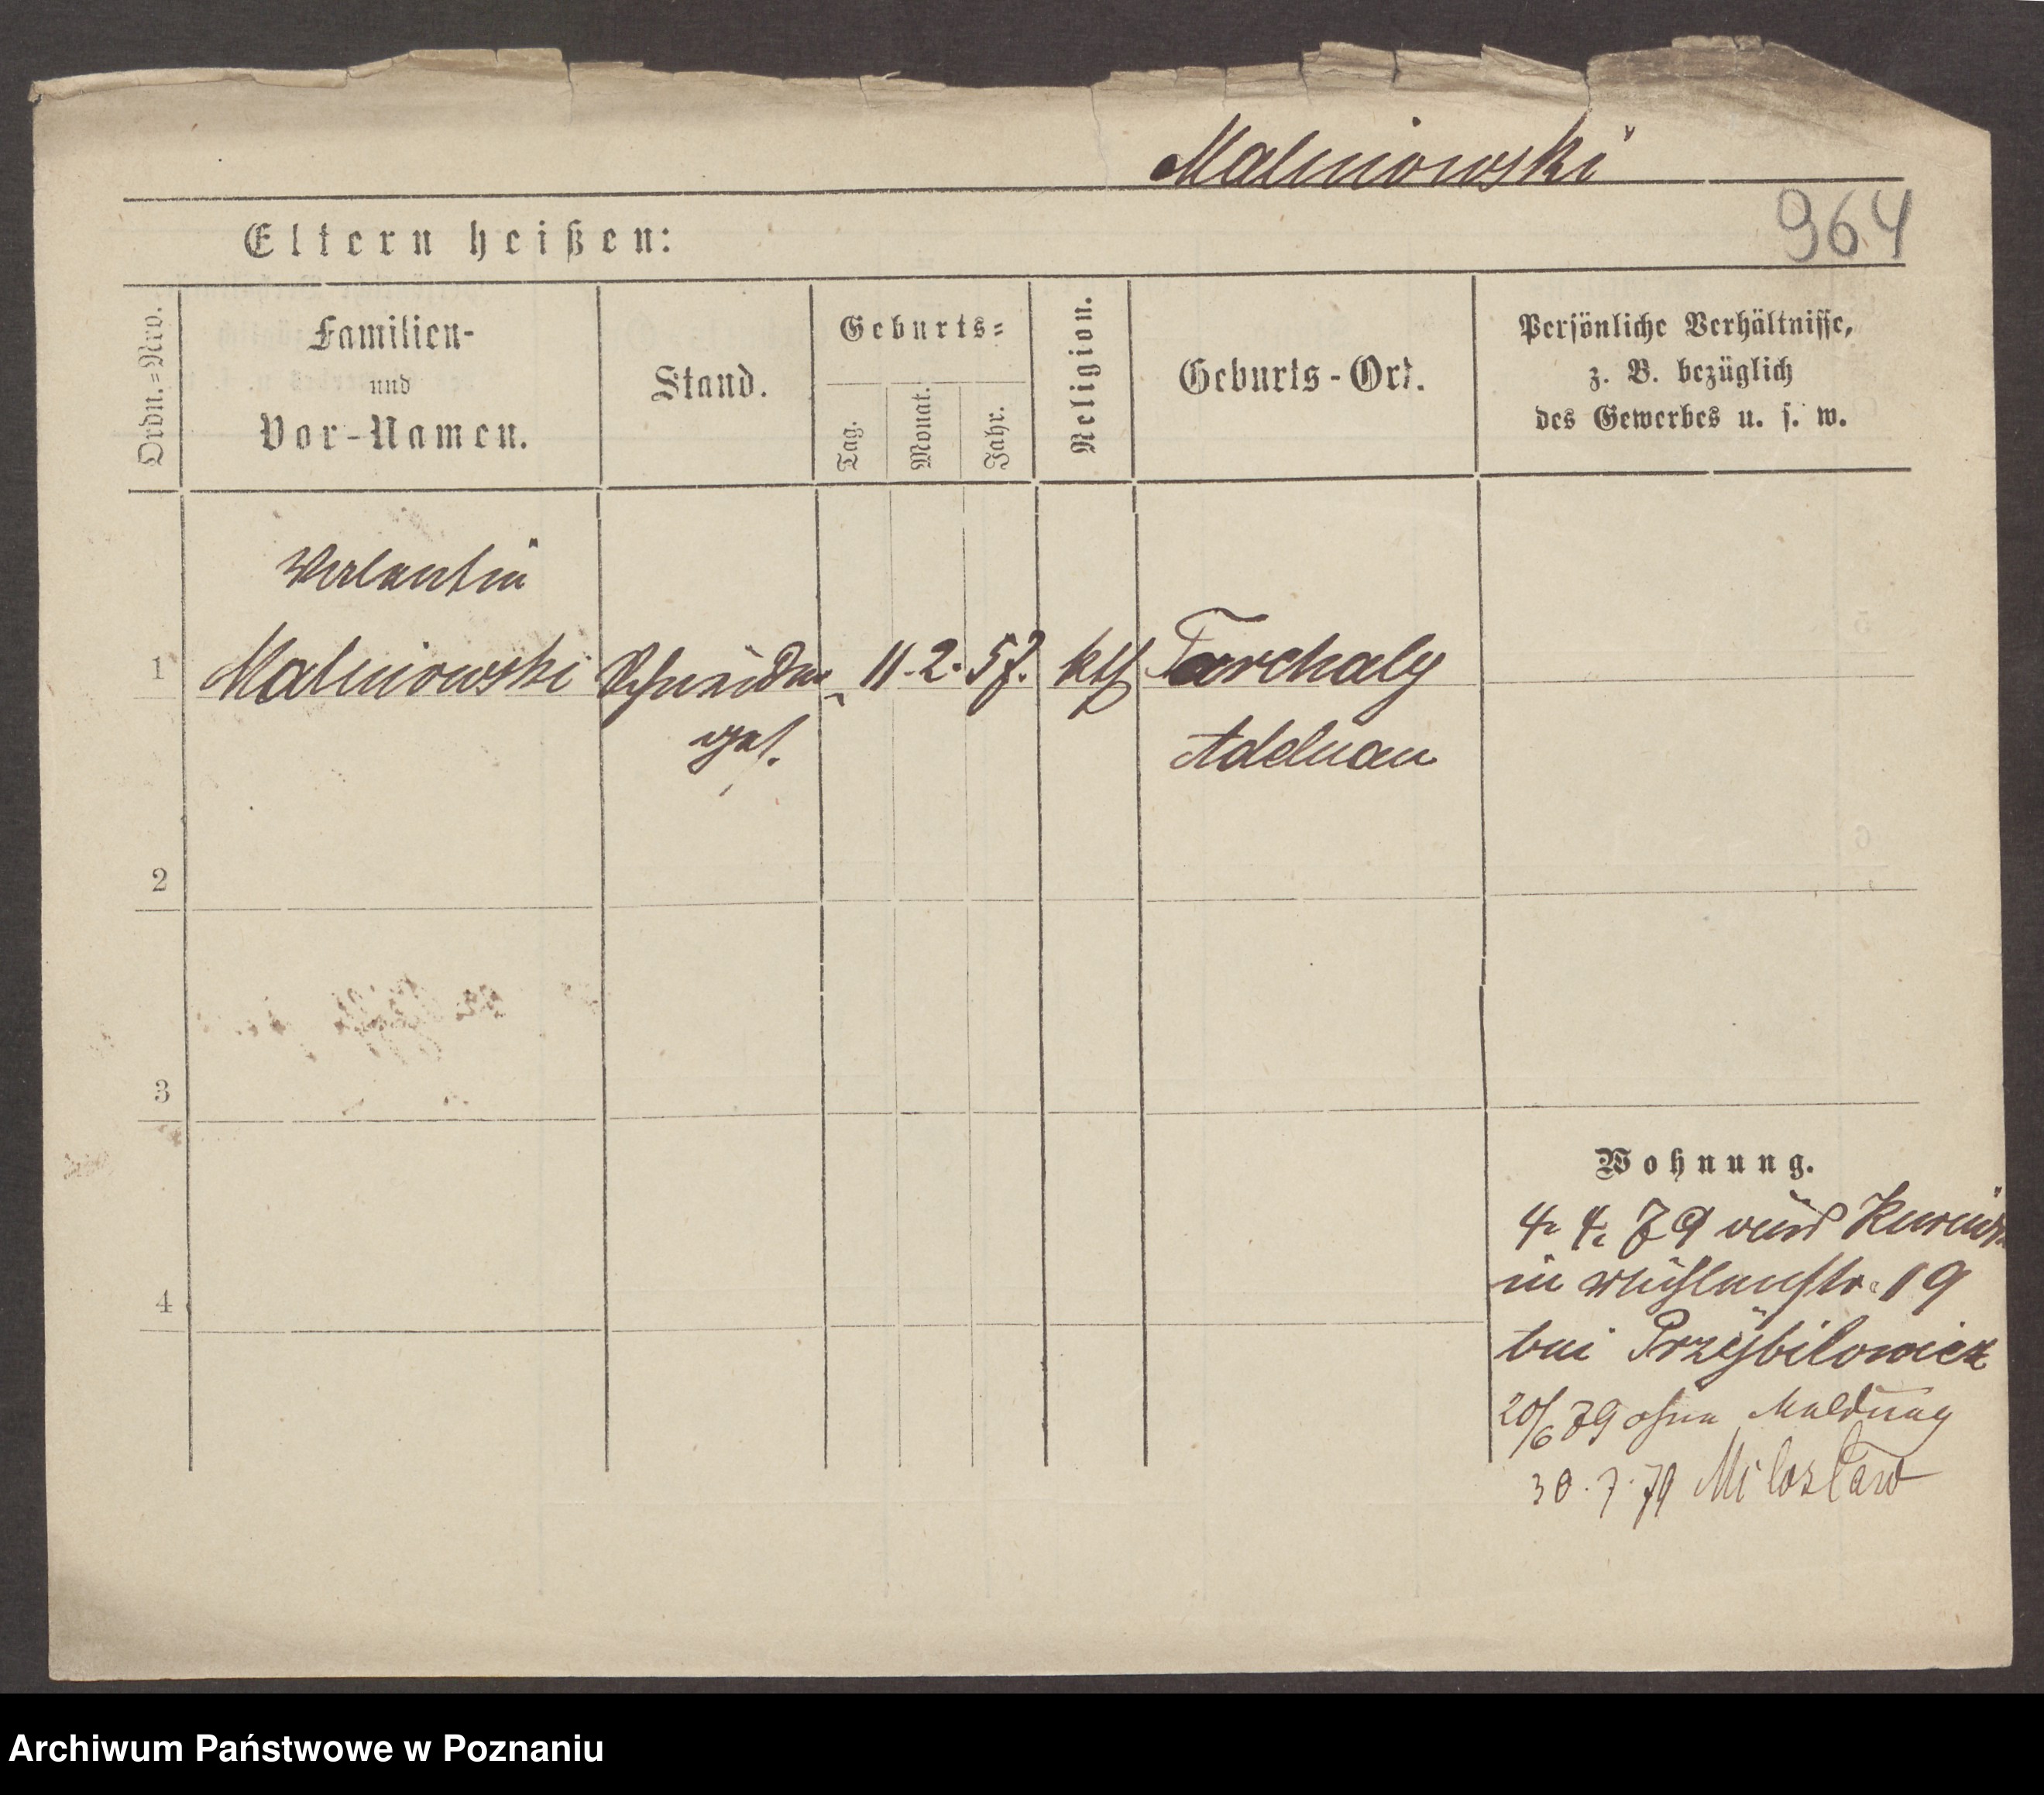 Malinowski
964
Eltern heißen:
Ordn.=Nro.
Familien-
und
Vor-Namen.
Stand.
Geburts=
Tag.
Monat.
Jahr.
Religion.
Geburts-Ort.
Persönliche Verhältnisse,
z. B. bezüglich
des Gewerbes u. s. w.
Valentin
1 Malinowski Schneider 11. 2. 57. kth Tarchaly
ges. Adelnau
2
3
4
Wohnung.
4. 4. 79 von
in 19
bei Przybilowicz
20/6 79 ohne Meldung
30. 7. 79 Miloslaw
Archiwum Państwowe w Poznaniu